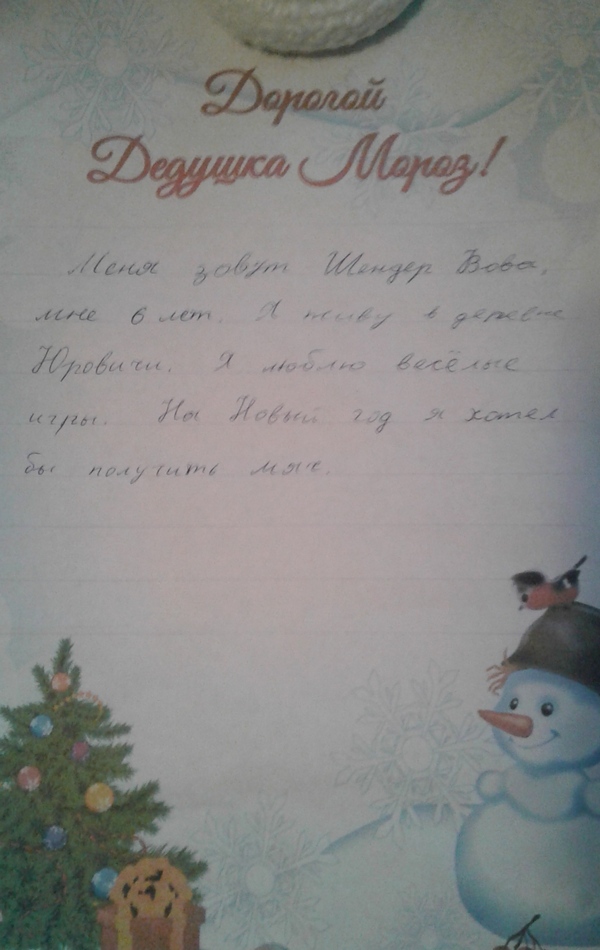 Дорогой
Дедушка Мороз!
Меня зовут Шендер Вова,
мне 6 лет. Я живу в деревне
Юровичи. Я люблю весёлые
игры. На Новый год я хотел
бы получить мяч.